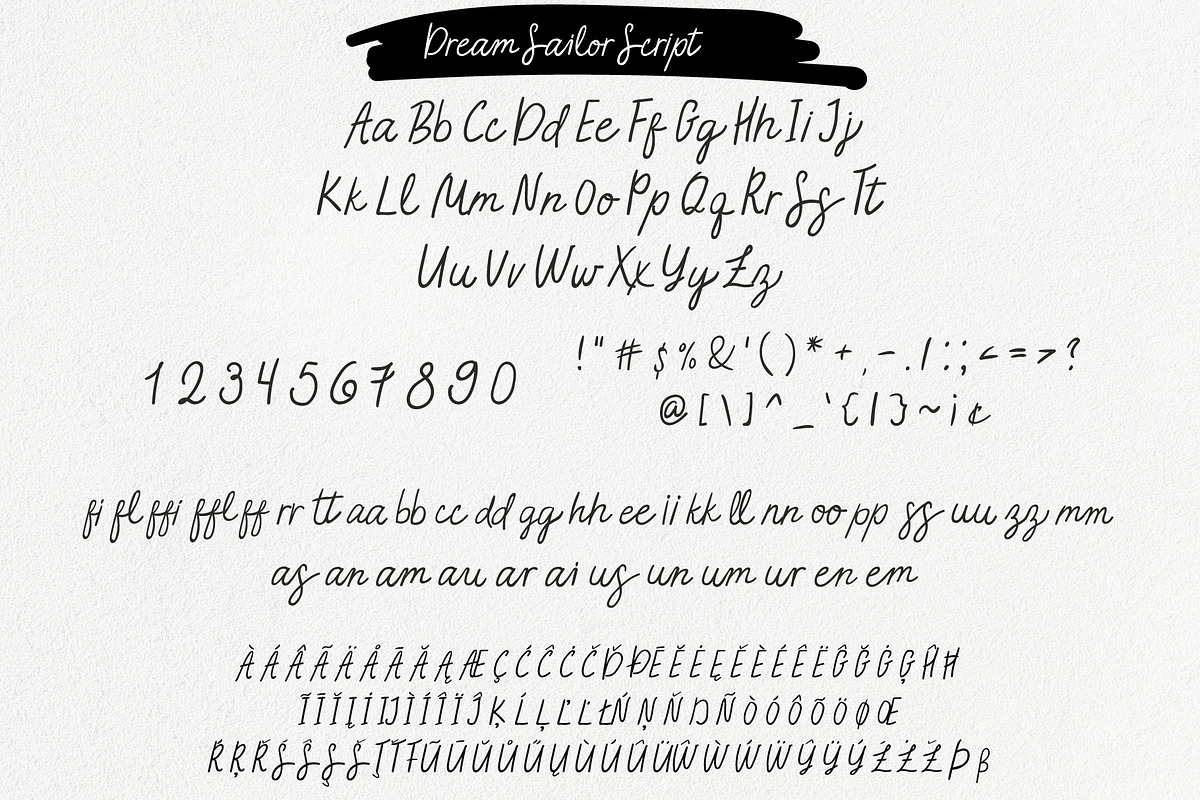 Dream Sailor Script
Aa Bb Cc Dd Ee Ff Gg Hh Ii Jj
Kk Ll Mm Nn Oo Pp Qq Rr Ss Tt
Uu Vv Ww Xx Yy Zz
1 2 3 4 5 6 7 8 9 0
! " # $ % & ' ( ) * + , - . / : ; < = > ?
@ [ \ ] ^ _ ` { | } ~ ¡ ¢
fi fl ffi ffl ff rr tt aa bb cc dd gg hh ee ii kk ll nn oo pp ss uu zz mm
as an am au ar ai us un um ur en em
À Á Â Ã Ä Å Ā Ă Ą Æ Ç Ć Ĉ Ċ Č Ď Đ Ē Ĕ Ė Ę Ě È É Ê Ë Ĝ Ğ Ġ Ģ Ĥ Ħ
Ĩ Ī Ĭ Į İ IJ Ì Í Î Ï Ĵ Ķ Ĺ Ļ Ľ Ŀ Ł Ń Ņ Ň Ŋ Ñ Ò Ó Ô Õ Ö Ø Œ
Ŕ Ŗ Ř Ś Ŝ Ş Š Ţ Ť Ŧ Ũ Ū Ŭ Ů Ű Ų Ù Ú Û Ü Ŵ Ẁ Ẃ Ẅ Ŷ Ÿ Ý Ź Ż Ž Þ ß